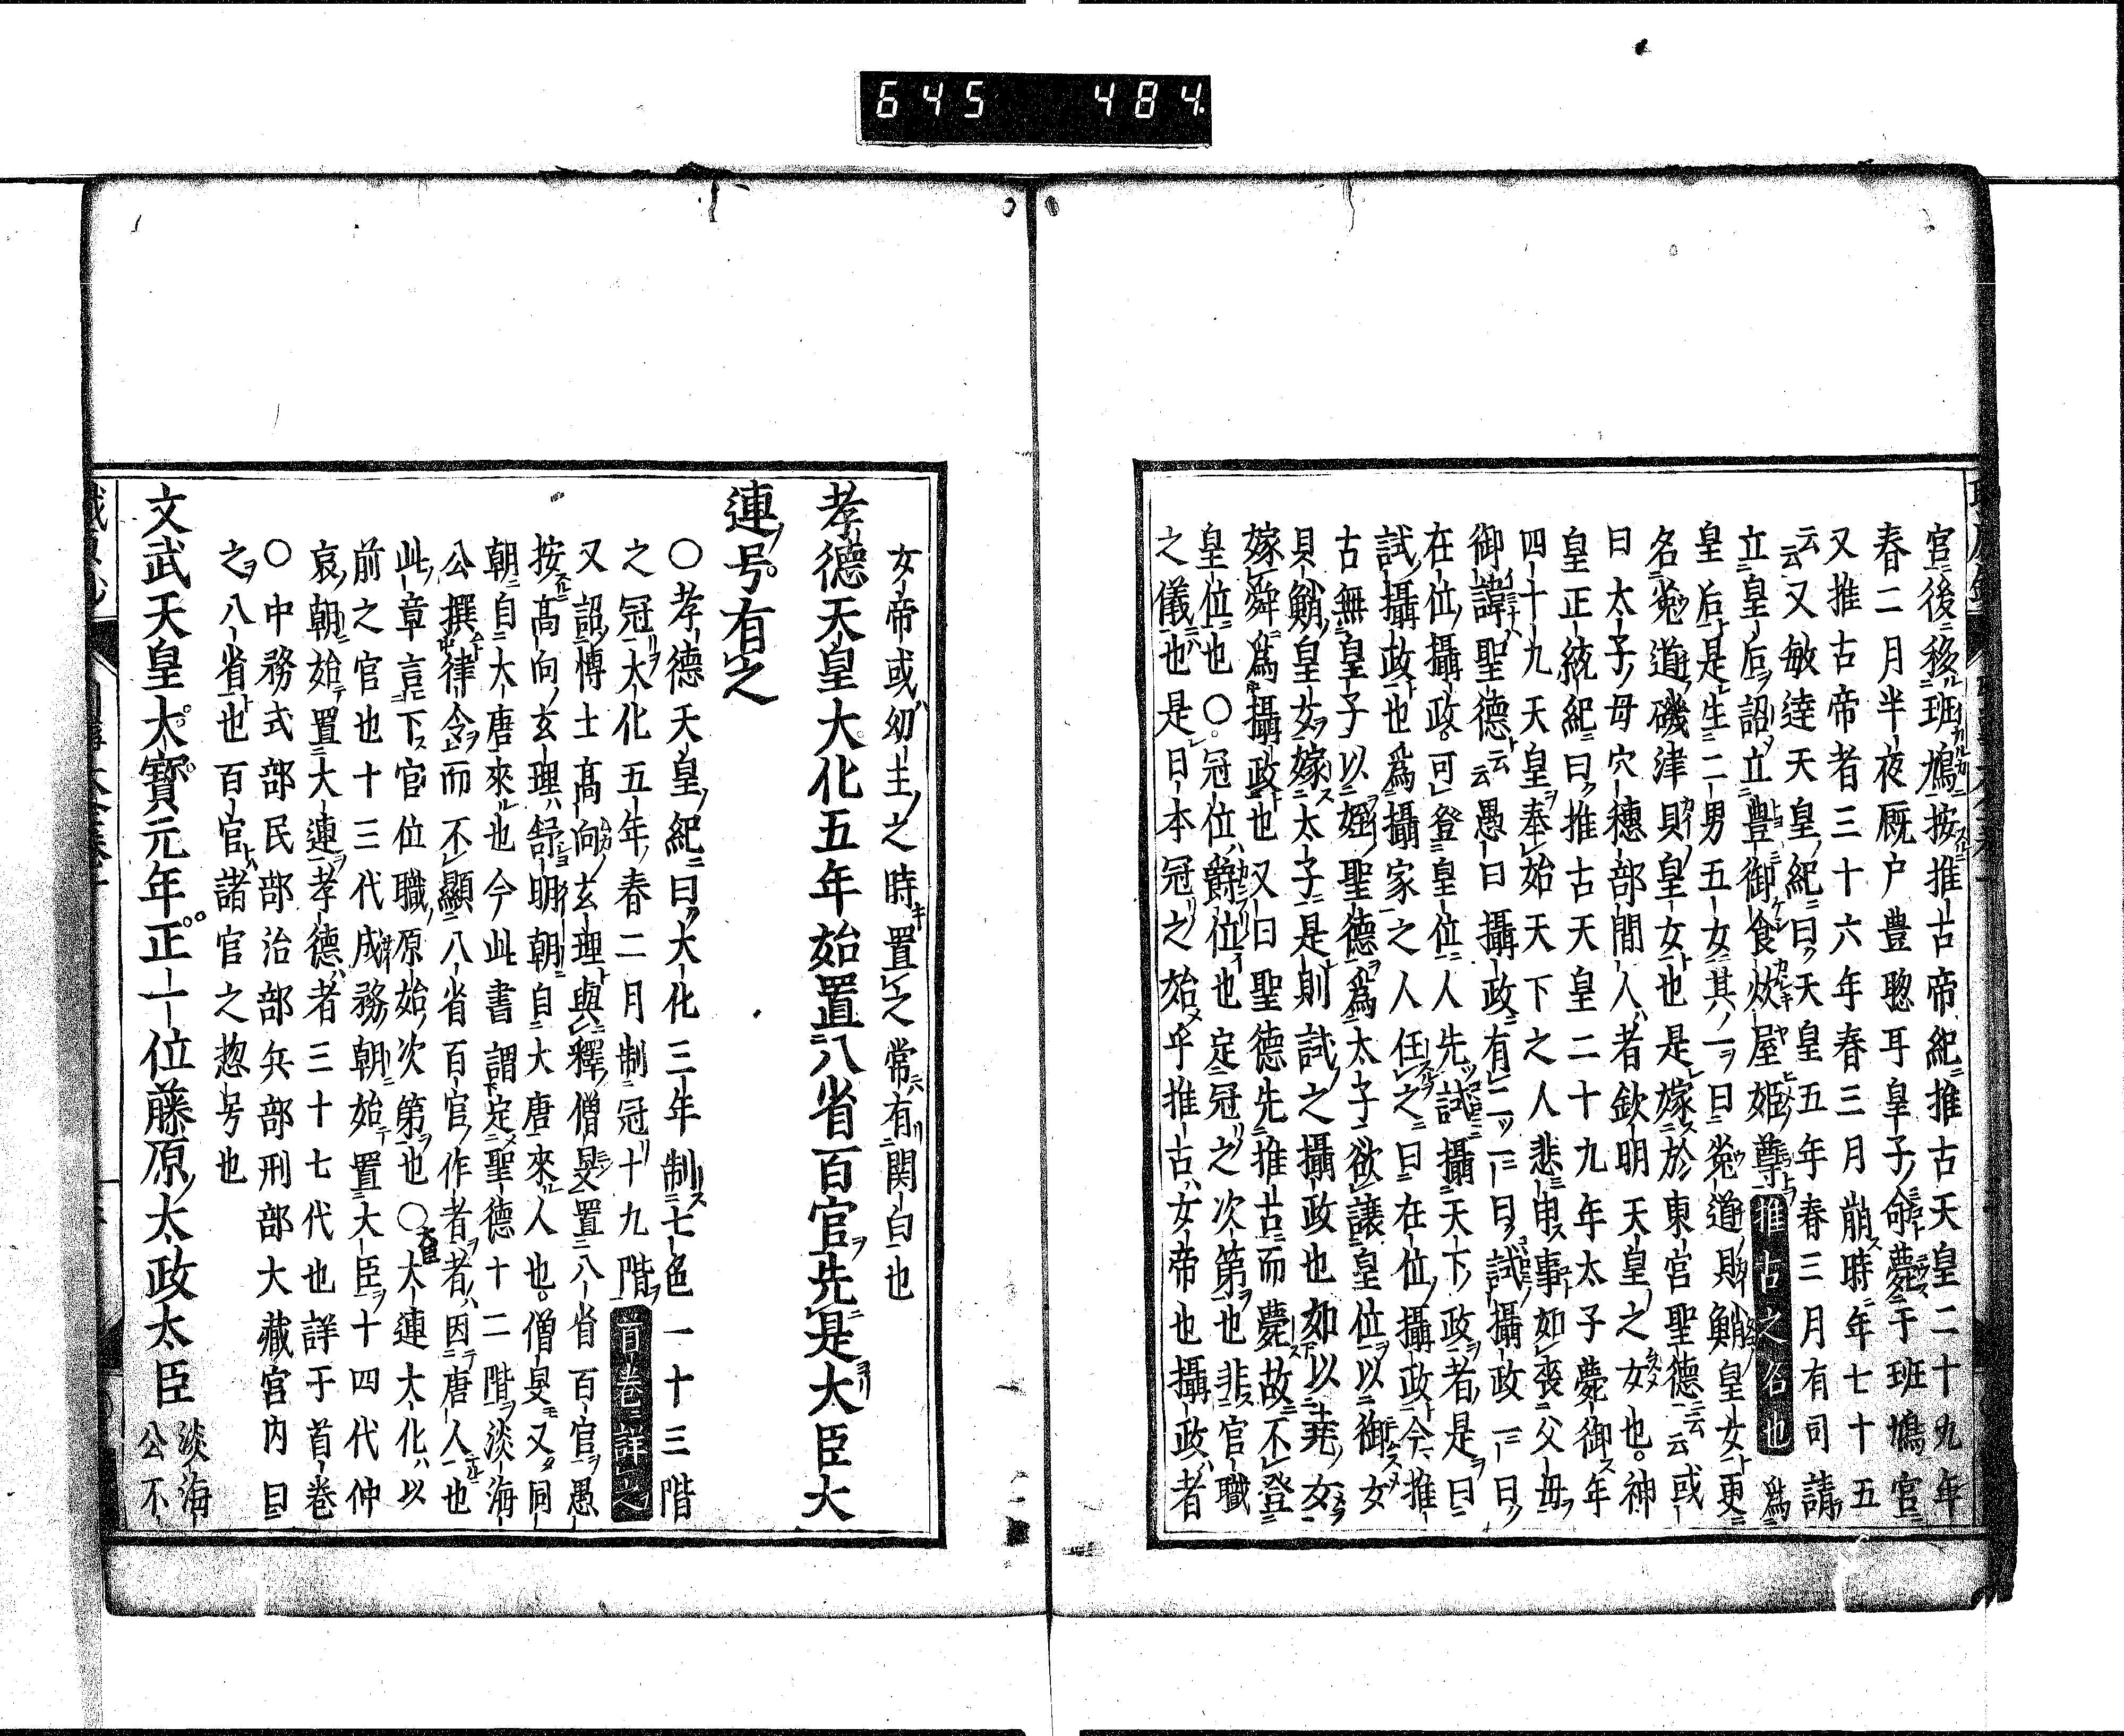 645 484
宮後移班鳩按推古帝紀推古天皇二十九年
春二月半夜厩戸豊聡耳皇子命薨于班鳩宮
又推古帝者三十六年春三月崩時年七十五
云云又敏達天皇紀曰天皇五年春三月有司請
立皇后詔立豊御食炊屋姫尊推古之名也為
皇后是生二男五女其一曰菟道貝鮹皇女更
名菟道磯津貝皇女也是嫁於東宮聖德云云或
曰太子母穴穗部間人者欽明天皇之女也神
皇正統紀曰推古天皇二十九年太子薨御年
四十九天皇奉始天下之人悲申事如喪父母
御諱聖德云云愚曰攝政有二一曰試攝政一曰
在位攝政可登皇位人先試攝天下政者是曰
試攝政也為攝家之人任之曰在位攝政今推
古無皇子以姪聖德為太子欲讓皇位以御女
貝鮹皇女嫁太子是則試之攝政也如以堯女
嫁舜為攝政也又曰聖德先推古而薨故不登
皇位也〇冠位爵位也定冠之次第也非官職
之儀也是日本冠之始乎推古女帝也攝政者
女帝或幼主之時置之常有関白也
孝德天皇大化五年始置八省百官先是大臣大
連号有之
〇孝德天皇紀曰大化三年制七色一十三階
之冠大化五年春二月制冠十九階首卷詳之
又詔博士高向玄理與釋僧旻置八省百官愚
按高向玄理舒明朝自大唐來人也僧旻又同
朝自大唐來也今此書謂定聖德十二階淡海
公撰律令而不顯八省百官作者者因唐人也
此章言下官位職原始次第也〇大臣大連大化以
前之官也十三代成務朝始置大臣十四代仲
哀朝始置大連孝德者三十七代也詳于首卷
〇中務式部民部治部兵部刑部大藏宮內曰
之八省也百官諸官之惣号也
文武天皇大寶元年正一位藤原太政太臣淡海
公不